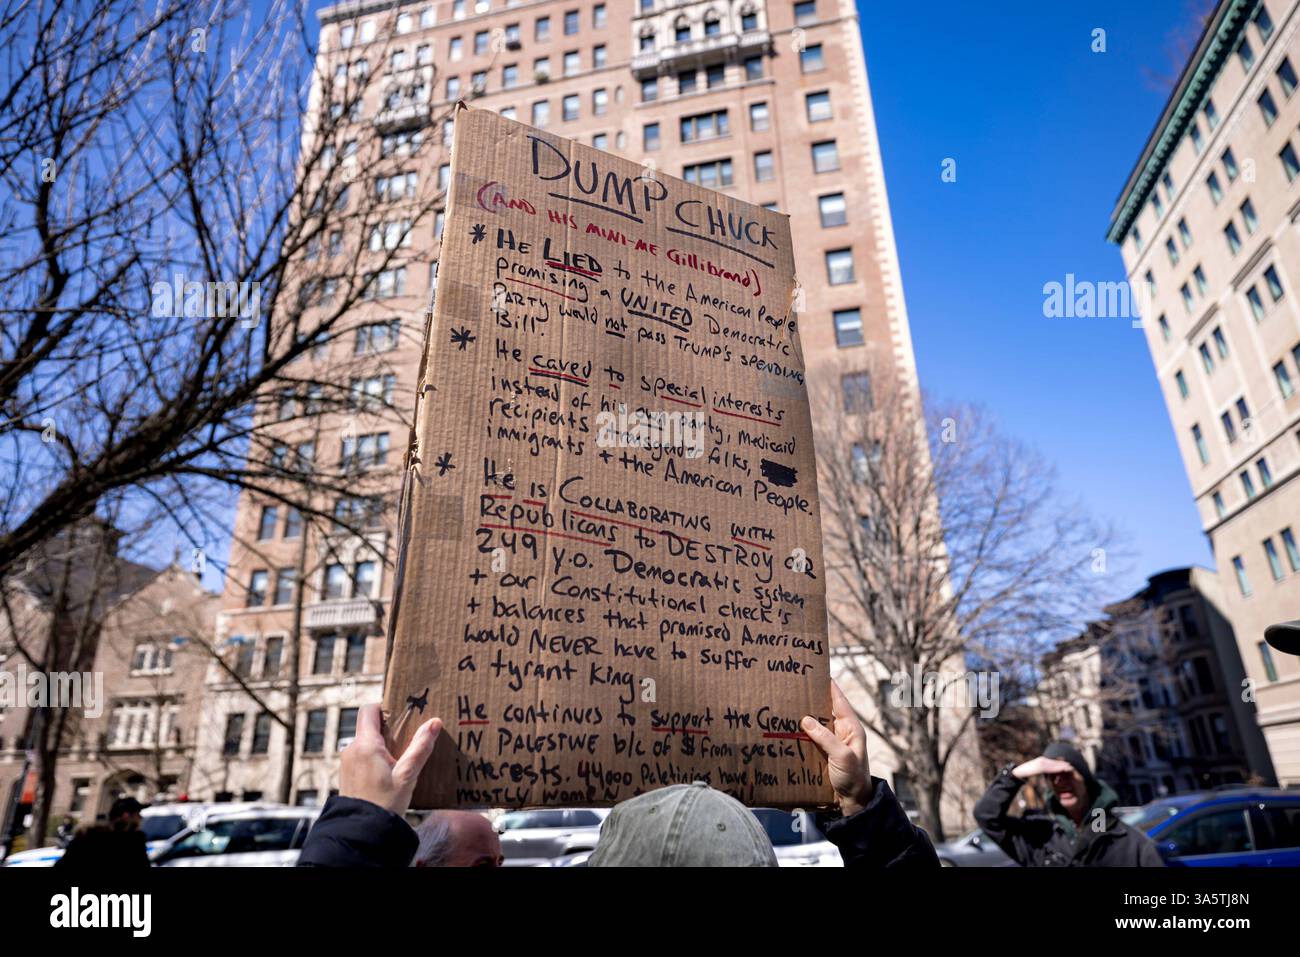 DUMP CHUCK
(AND HIS MINI-ME Gillibrand)
* He LIED to the American People
promising a UNITED Democratic
Party would not pass Trump's SPENDING
Bill.
* He caved to special interests
instead of his own party, Medicaid
recipients transgender folks,
immigrants + the American People.
* He is COLLABORATING WITH
Republicans to DESTROY OUR
249 y.o. Democratic System
+ our Constitutional check's
+ balances that promised Americans
would NEVER have to suffer under
a tyrant King.
* He continues to support the
IN PALESTINE b/c of $ from special
interests. 44,000 Palestinians have been killed
MOSTLY WOMEN
alamy
alamy
Image ID: 3A5TJ8N
www.alamy.com